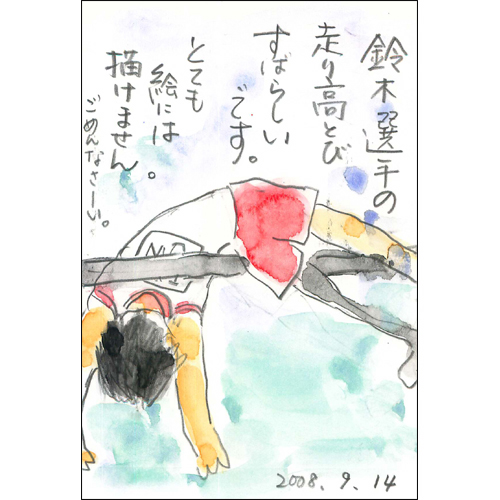 鈴木選手の
走り高とび
すばらしい
です。
とても
絵には
描けません。
ごめんなさーい。
2008.9.14